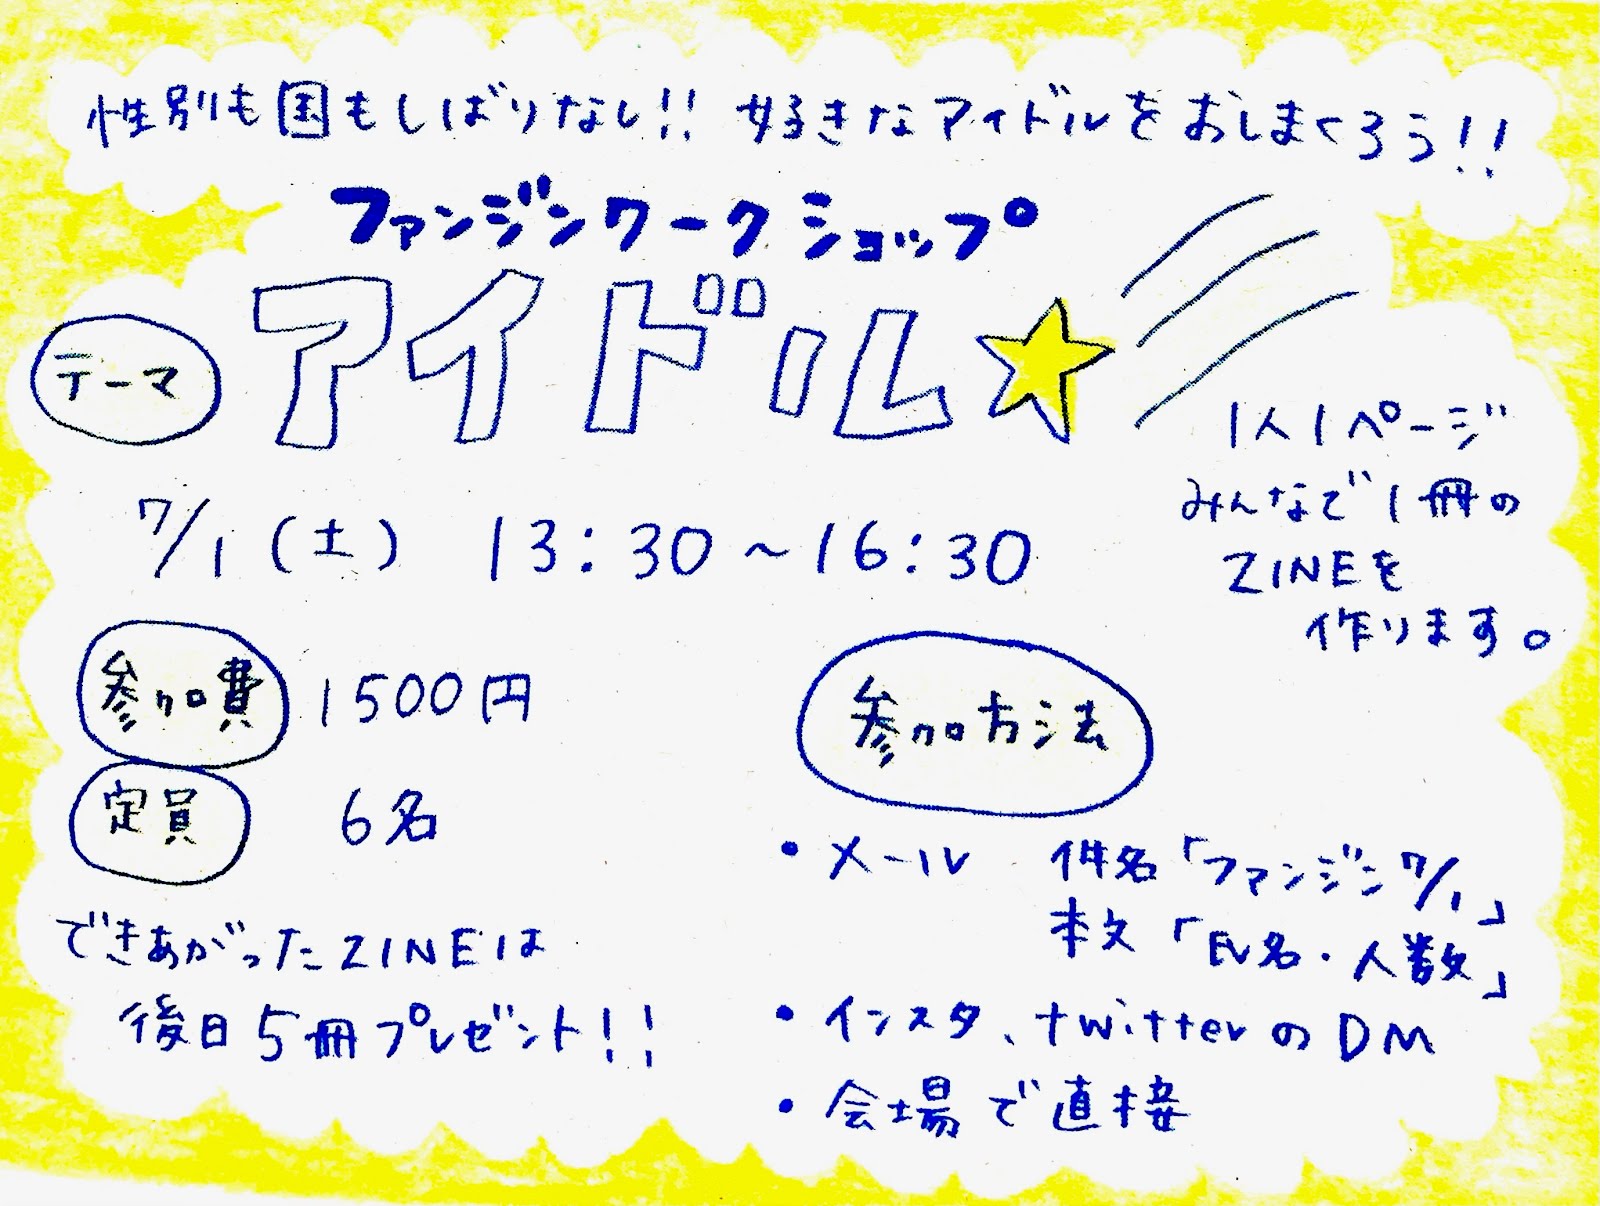 性別も国もしばりなし!! 好きなアイドルをおしまくろう!!
ファンジンワークショップ
テーマ
アイドル
7/1(土) 13:30～16:30
1人1ページ
みんなで1冊の
ZINEを
作ります。
参加費 1500円
定員 6名
できあがったZINEは
後日5冊プレゼント!!
参加方法
・メール 件名「ファンジン7/1」
本文「氏名・人数」
・インスタ、twitterのDM
・会場で直接